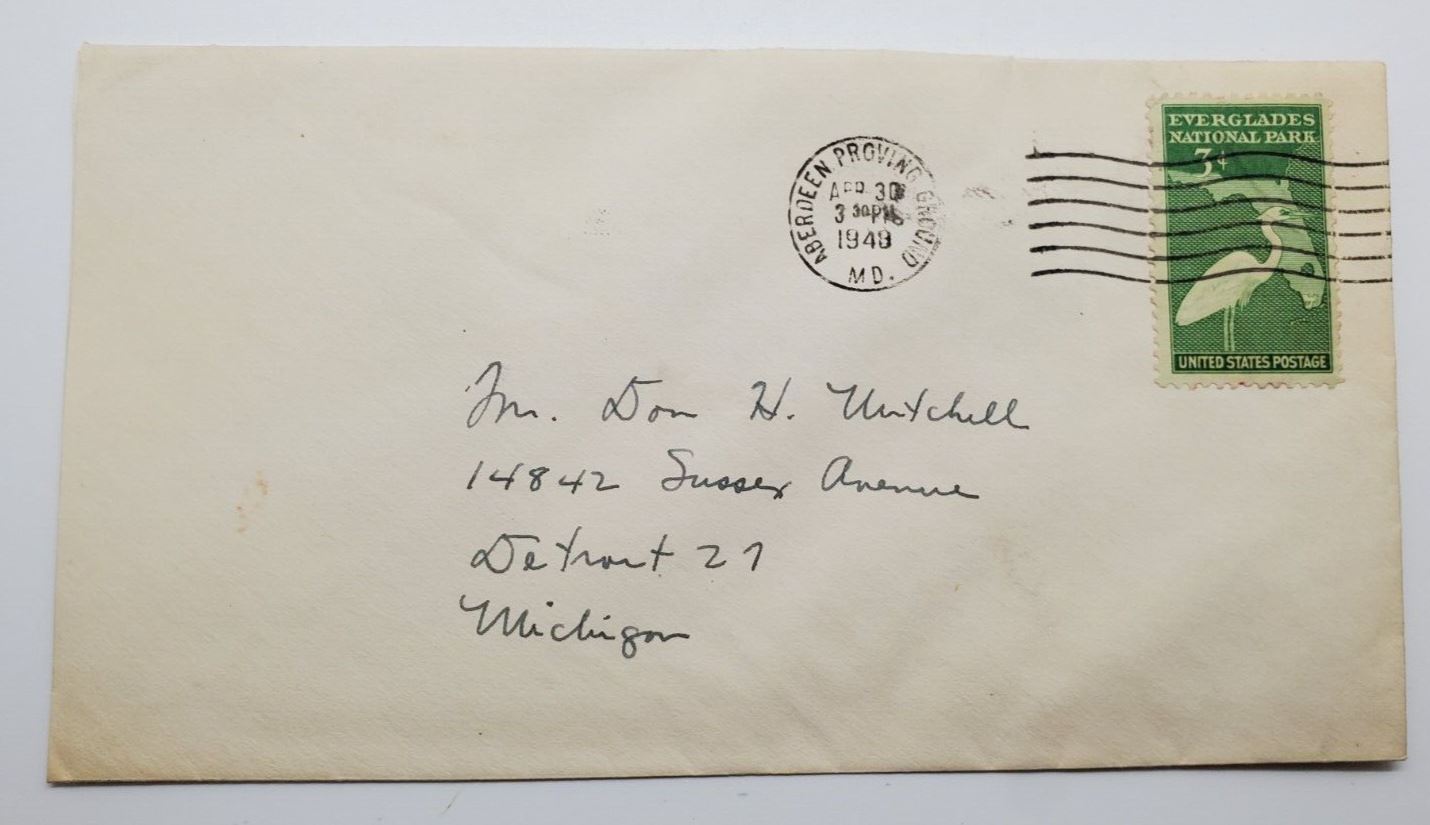 EVERGLADES
NATIONAL PARK
3¢
UNITED STATES POSTAGE
ABERDEEN PROVING GROUND
APR 30
3 30 PM
1949
MD.
Mr. Don H. Mitchell
14842 Sussex Avenue
Detroit 27
Michigan